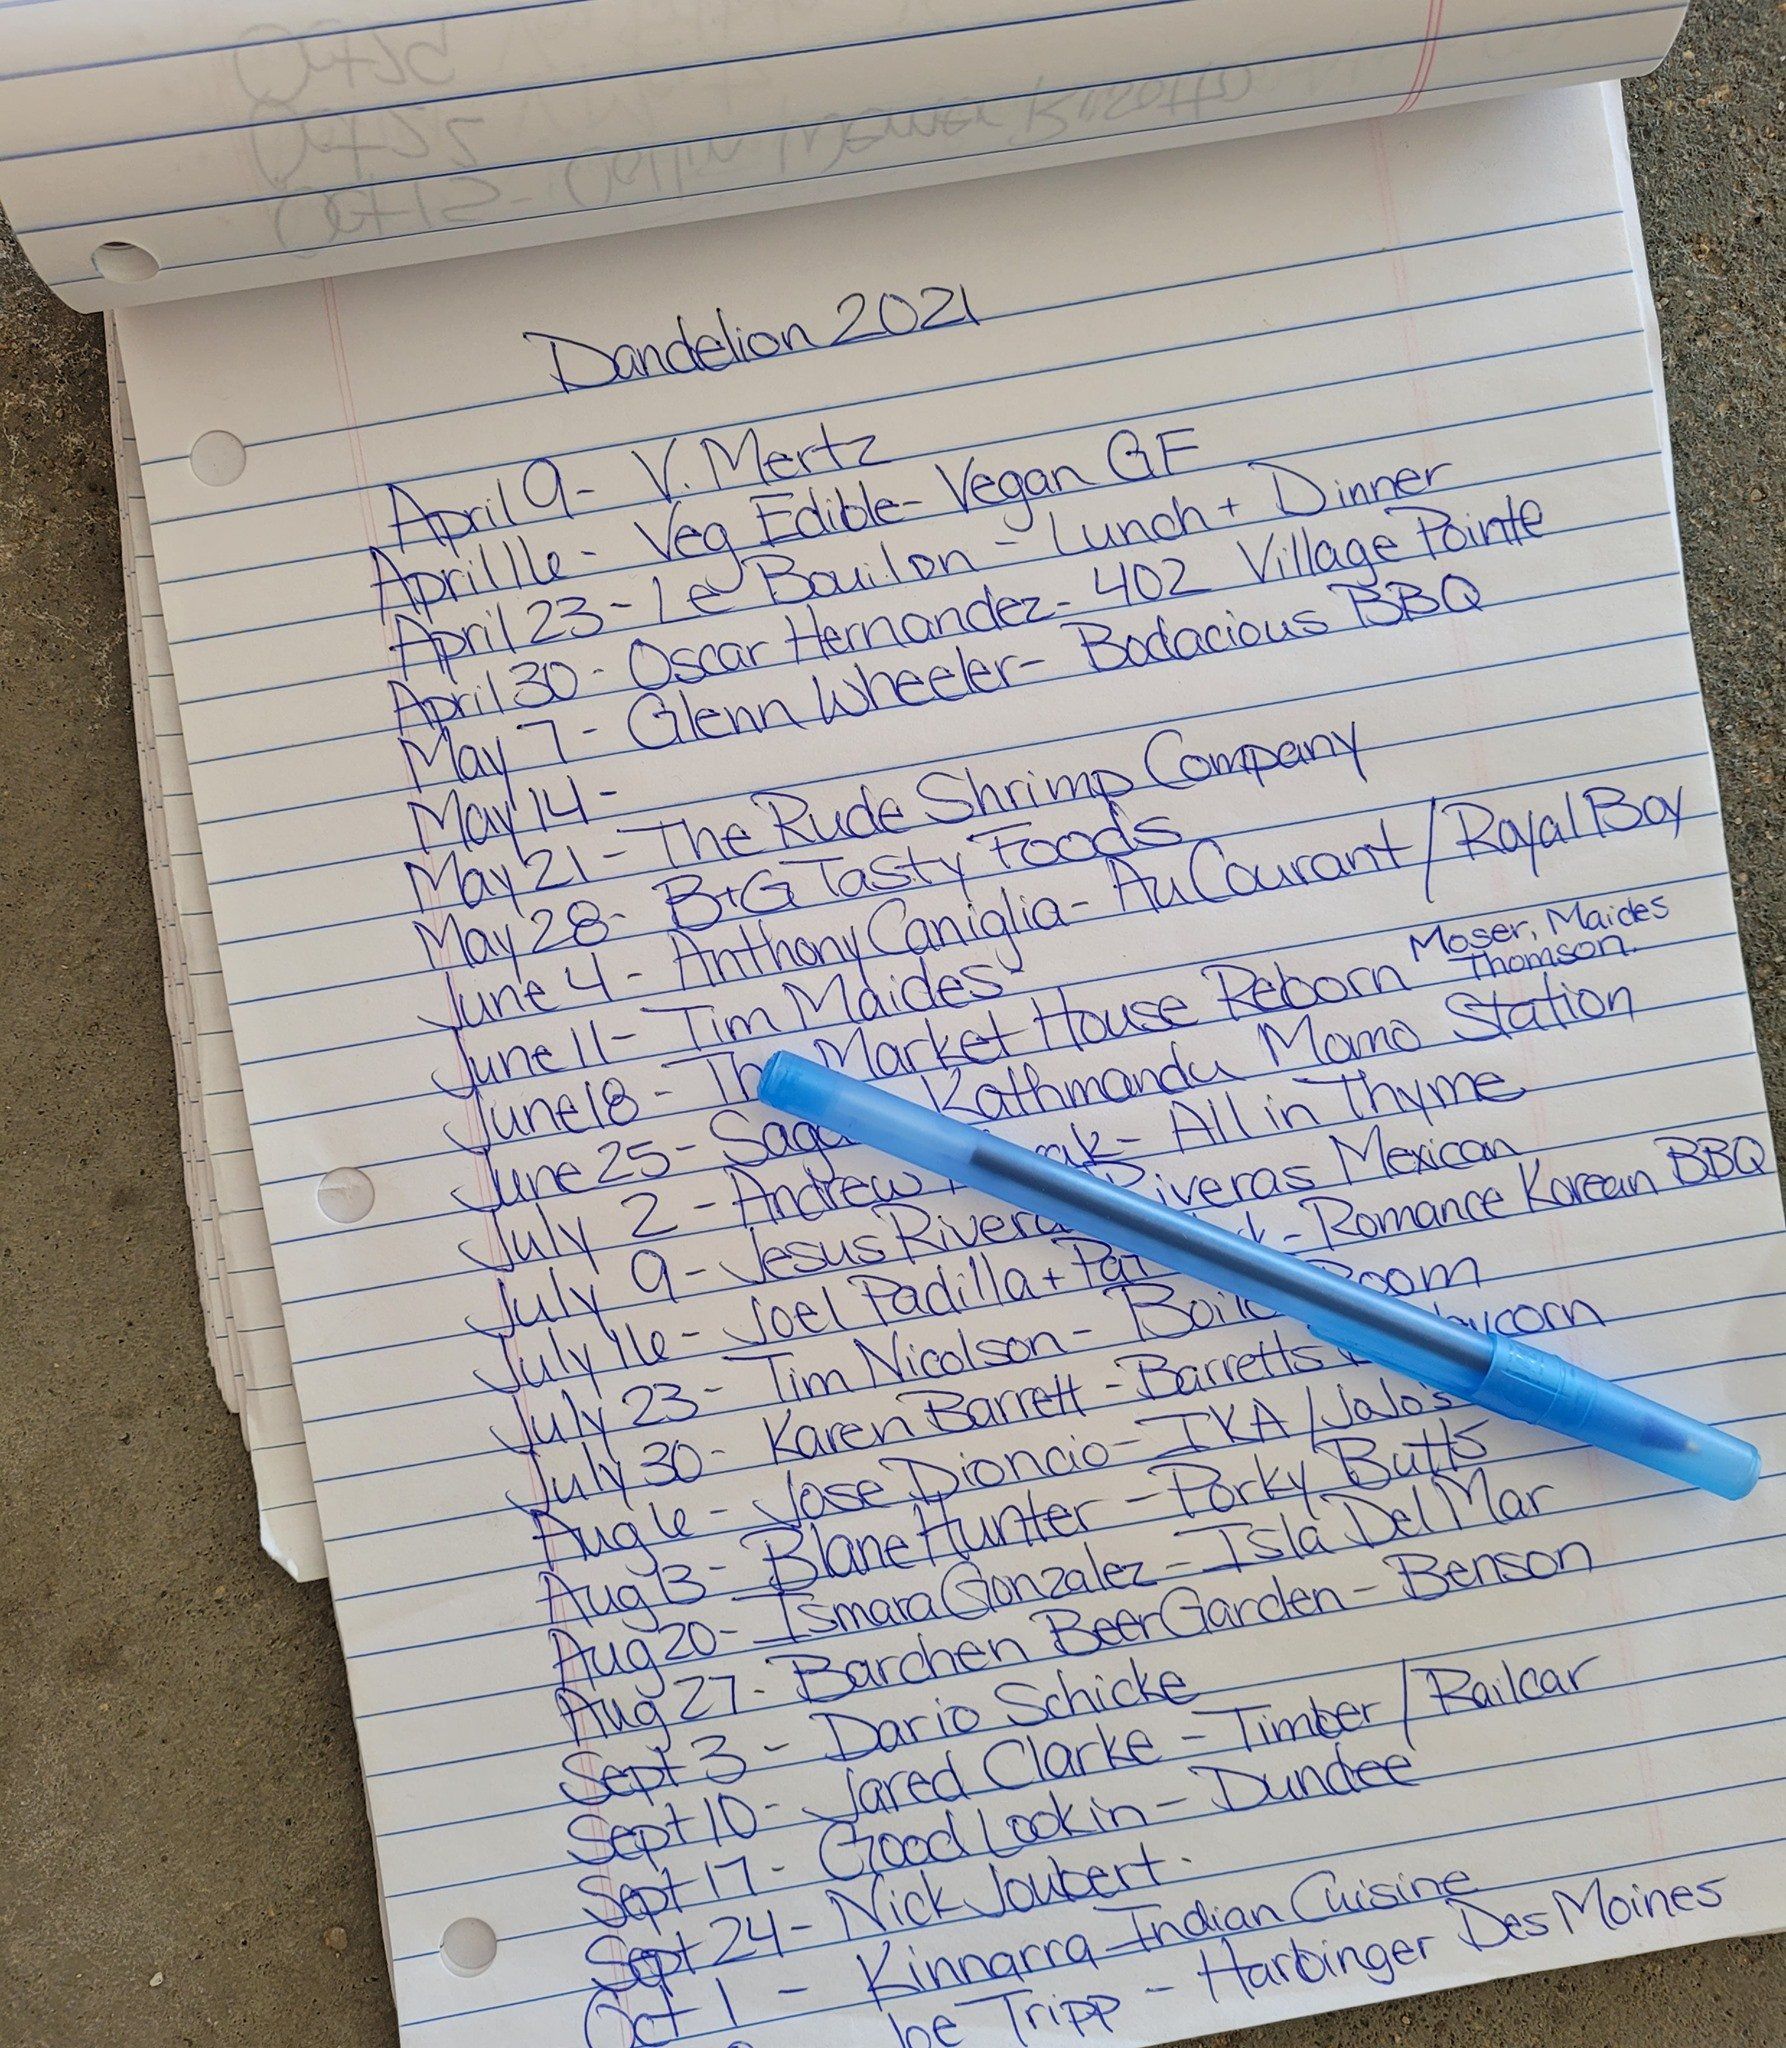 Dandelion 2021
April 9 - V. Mertz
April 16 - Veg Edible - Vegan GF
April 23 - Le Bouilon - Lunch + Dinner
April 30 - Oscar Hernandez - 402 Village Pointe
May 7 - Glenn Wheeler - Bodacious BBQ
May 14 -
May 21 - The Rude Shrimp Company
May 28 - B+G Tasty Foods
June 4 - Anthony Caniglia - Au Courant / Royal Boy
June 11 - Tim Maides
June 18 - Th Market House Reborn Moser, Maides
Thomson.
June 25 - Kathmandu Momo Station
July 2 - Andrew - All in Thyme
July 9 - Jesus Rivera Riveras Mexican
July 16 - Joel Padilla + - Romance Korean BBQ
July 23 - Tim Nicolson - Room
July 30 - Karen Barrett - Barretts
Aug 6 - Jose Dioncio - IKA / Jalo's
Aug 13 - Blane Hunter - Porky Butts
Aug 20 - Ismara Gonzalez - Isla Del Mar
Aug 27 - Barchen Beer Garden - Benson
Sept 3 - Dario Schicke
Sept 10 - Jared Clarke - Timber / Railcar
Sept 17 - Good Lookin - Dundee
Sept 24 - Nick Joubert.
Oct 1 - Kinnarra Indian Cuisine
Joe Tripp - Harbinger Des Moines